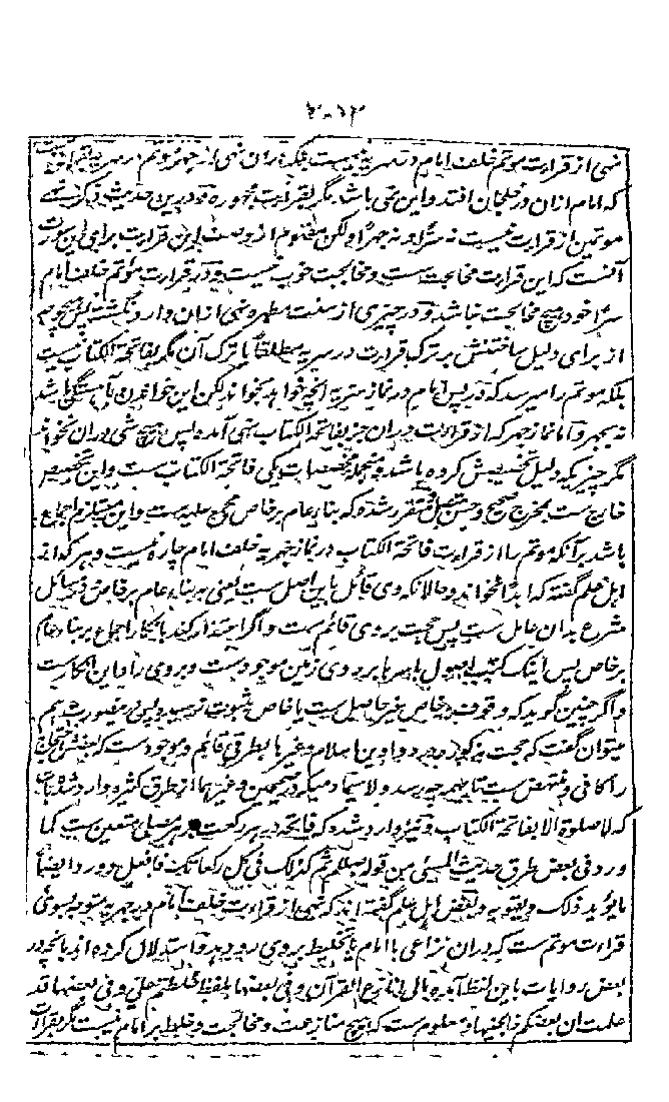 ۲۰۱۳
نهی از قراءت موتم خلف امام در سریه نیست بلکه دران نهی از جهر موتم در سریه
که امام ازان در خلجان افتد و این نمی باشد مگر بقراءت مجهوره و درین حدیث ذکر نهی
موتمین از قراءت نیست نه سرا و نه جهرا و لکن مفهوم از وصف این قراءت برای این سورت
آنست که این قراءت مخالجت ست و مخالجت خوب نیست و در قراءت موتم خلف امام
سرا خود هیچ مخالجت نباشد و در چیزی از سنت مطهره نهی ازان وارد نگشت پس
از برای دلیل ساختنش بر ترک قراءت در سریه مطلقا یا ترک آن مگر بفاتحة الکتاب نیست
بلکه موتم را میرسد که در پس امام در نماز سریه انچه خواهد بخواند لکن این خواندن بآهستگی باشد
نه بجهر و اما نماز جهر که از قراءت دران جز بفاتحة الکتاب نهی آمده پس هیچ شی دران نخواند
مگر چیزیکه دلیل تخصیصش کرده باشد و منجمله مخصصات یکی فاتحة الکتاب ست و این تخصیص
خارج ست بمخرج صحیح و حسن و متقرر شده که بنای عام بر خاص مجمع علیه ست و این مستلزم اجماع
باشد بر آنکه موتم را از قراءت فاتحة الکتاب در نماز جهریه خلف امام چاره نیست و هر که از
اهل علم گفته که ابدا نخواند و حالانکه وی قائل باین اصل ست یعنی به بناء عام بر خاص و در مسائل
شرع بدان عامل ست پس حجت بر وی قائم ست و اگر اعتذار کند بانکار اجماع بر بناء عام
بر خاص پس اینک کتب اصول باسرها بر روی زمین موجود ست و بروی راد این انکار ست
و اگر چنین گوید که وقوف بر خاص غیر حاصل ست یا خاص بثبوت نرسیده پس درین صورت هم
میتوان گفت که حجت مذکوره در دواوین اسلام و غیرها بطرقی قائم و موجود ست که بعضش احتجاج
را کافی و منتهض ست تا بهمه چه رسد و لاسیما دمیکه در صحیحین و غیرهما از طرق کثیره وارد شده باشد
که لا صلوة الا بفاتحة الکتاب و نیز وارد شده که فاتحه در هر رکعت بر هر مصلی متعین ست کما
ورد فی بعض طرق حدیث المسئی من قوله صلعم ثم کذلک فی کل رکعاتک فافعل و ورد ایضا
ما یؤید ذلک و یقویه و بعض اهل علم گفته اند که نهی از قراءت خلف امام در جهریه متوجه بسوی
قراءت موتم ست که دران نزاعی با امام یا تخلیط بر وی رو دهد و استدلال کرده اند بانچه در
بعض روایات باین لفظ آمده مالی انازع القرآن و فی بعضها بلفظ خلطتم علی و فی بعضها قد
علمت ان بعضکم خالجنیها و معلوم ست که هیچ منازعت و مخالجت و خلیط بر امام نیست مگر بقراءت